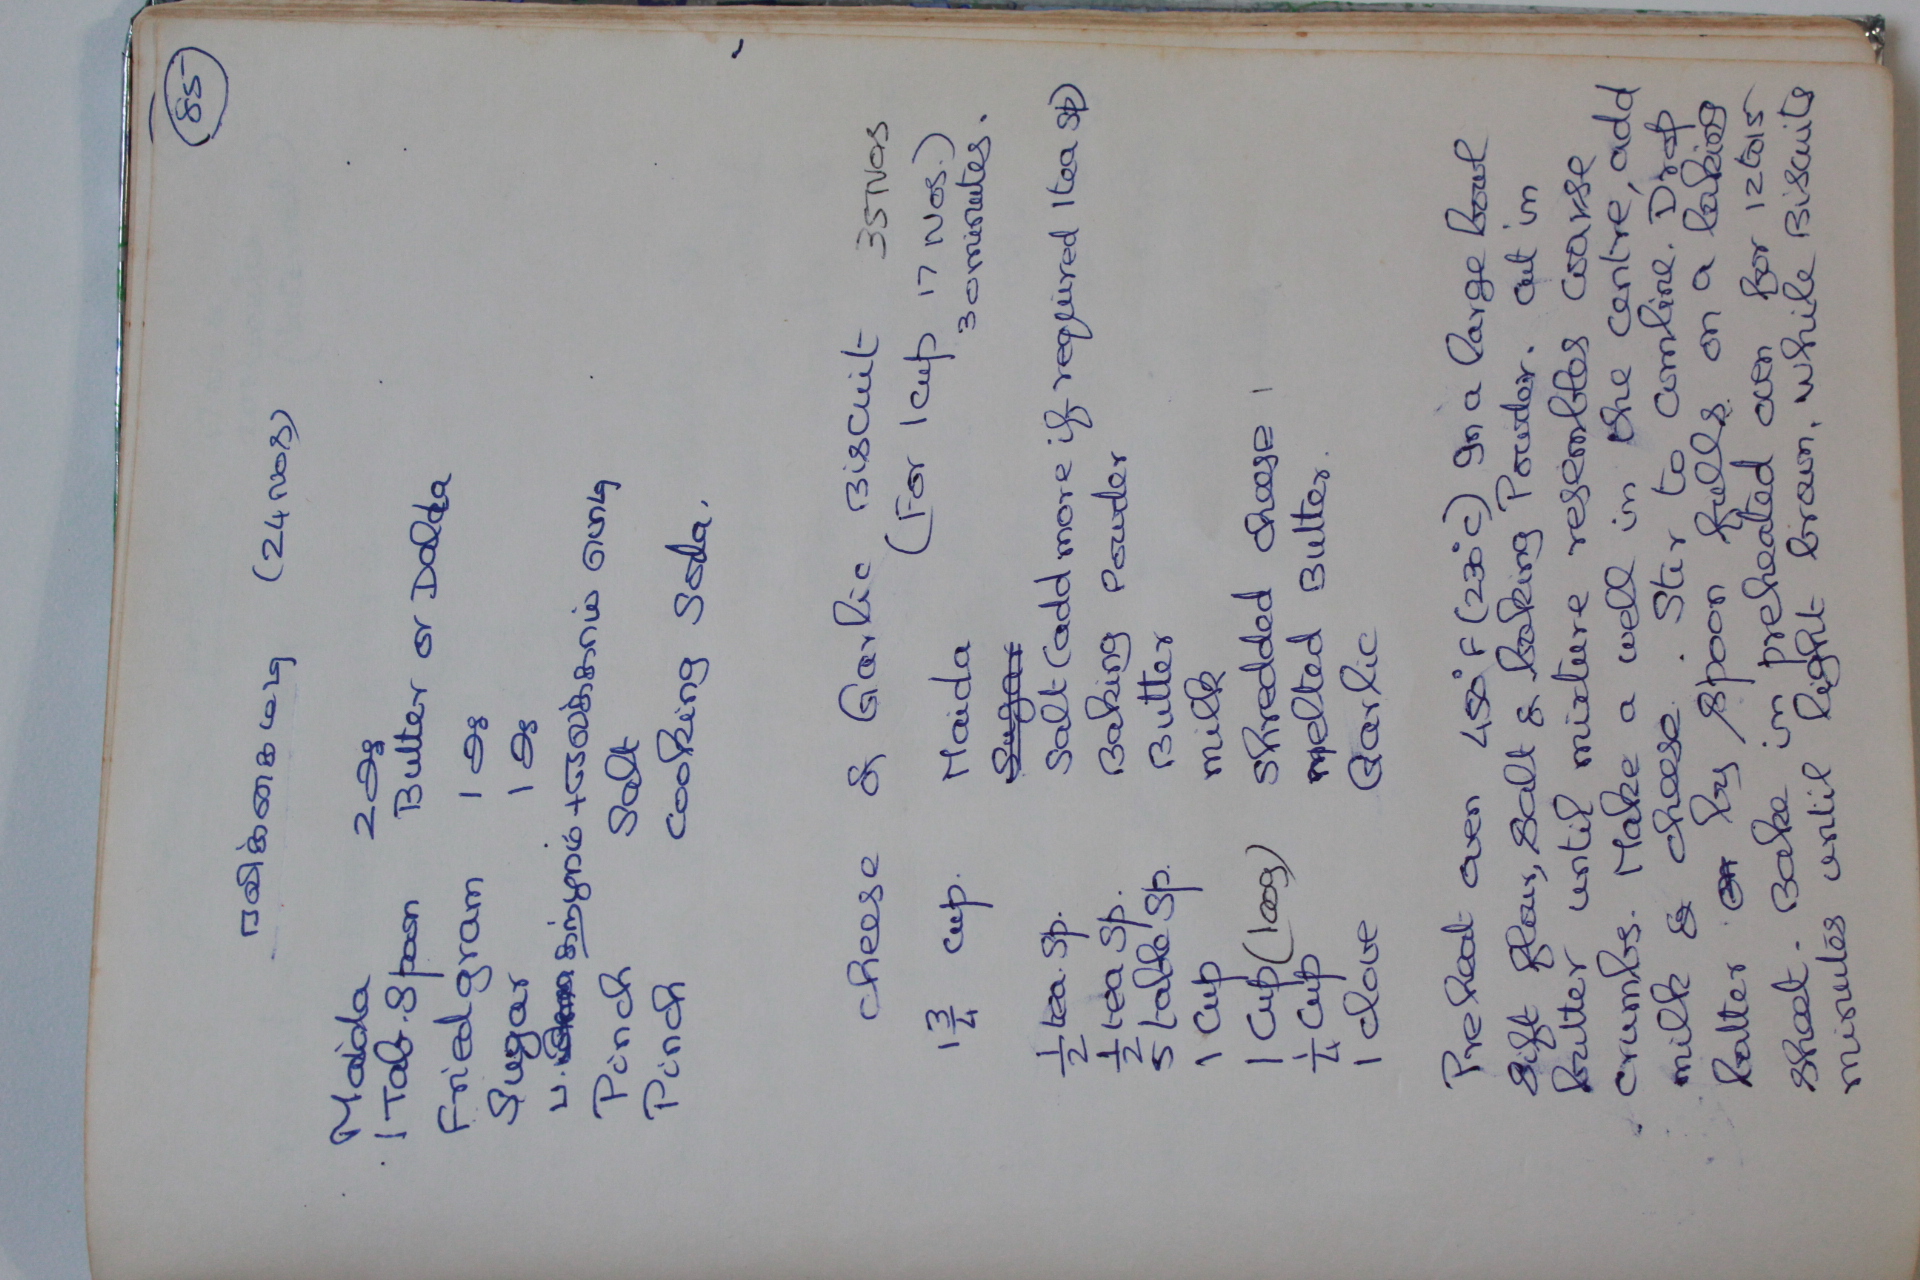 85
(24 Nos)
Maida 2 கு
1 Tab. Spoon Butter or Dalda
Fried gram 1 கு
Sugar 1 கு
Pinch Salt
Pinch Cooking Soda.
cheese & Garlic Biscuit 35 Nos
(For 1 cup 17 Nos.)
30 minutes.
1 3/4 cup. Maida
Sugar
1/2 tea. sp. Salt (add more if required 1 tea sp)
1/2 tea sp. Baking Powder
5 table sp. Butter
1 cup milk
1 cup (100g) shredded cheese 1
1/4 cup melted Butter.
1 clove Garlic
Preheat oven 450°F (230°C) In a large bowl
sift flour, salt & baking Powder. cut in
butter until mixture resembles coarse
crumbs. Make a well in the centre, add
milk & cheese. Stir to combine. Drop
batter by spoon fulls on a baking
sheet. Bake in preheated oven for 12 to 15
minutes until light brown, while Biscuits